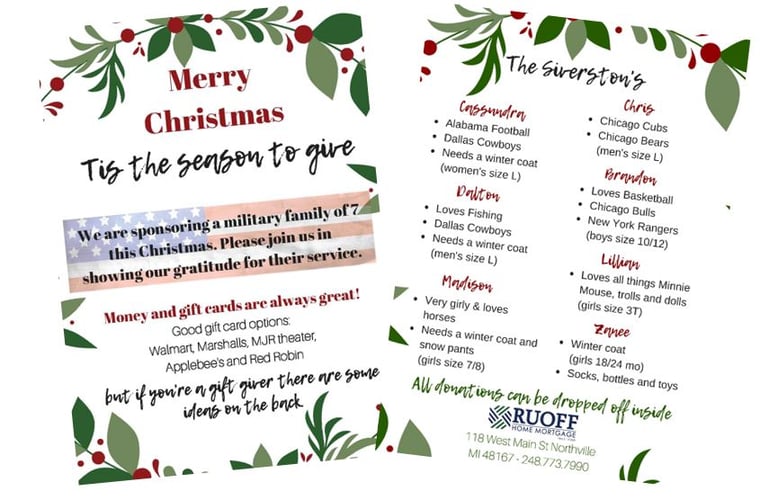 Merry
Christmas
Tis the season to give
We are sponsoring a military family of 7
this Christmas. Please join us in
showing our gratitude for their service.
Money and gift cards are always great!
Good gift card options:
Walmart, Marshalls, MJR theater,
Applebee's and Red Robin
but if you're a gift giver there are some
ideas on the back
The Siverston's
Cassundra
• Alabama Football
• Dallas Cowboys
• Needs a winter coat
(women's size L)
Dalton
• Loves Fishing
• Dallas Cowboys
• Needs a winter coat
(men's size L)
Madison
• Very girly & loves
horses
• Needs a winter coat and
snow pants
(girls size 7/8)
Chris
• Chicago Cubs
• Chicago Bears
(men's size L)
Brandon
• Loves Basketball
• Chicago Bulls
• New York Rangers
(boys size 10/12)
Lillian
• Loves all things Minnie
Mouse, trolls and dolls
(girls size 3T)
Zanee
• Winter coat
(girls 18/24 mo)
• Socks, bottles and toys
All donations can be dropped off inside
RUOFF
HOME MORTGAGE
118 West Main St Northville
MI 48167 - 248.773.7990